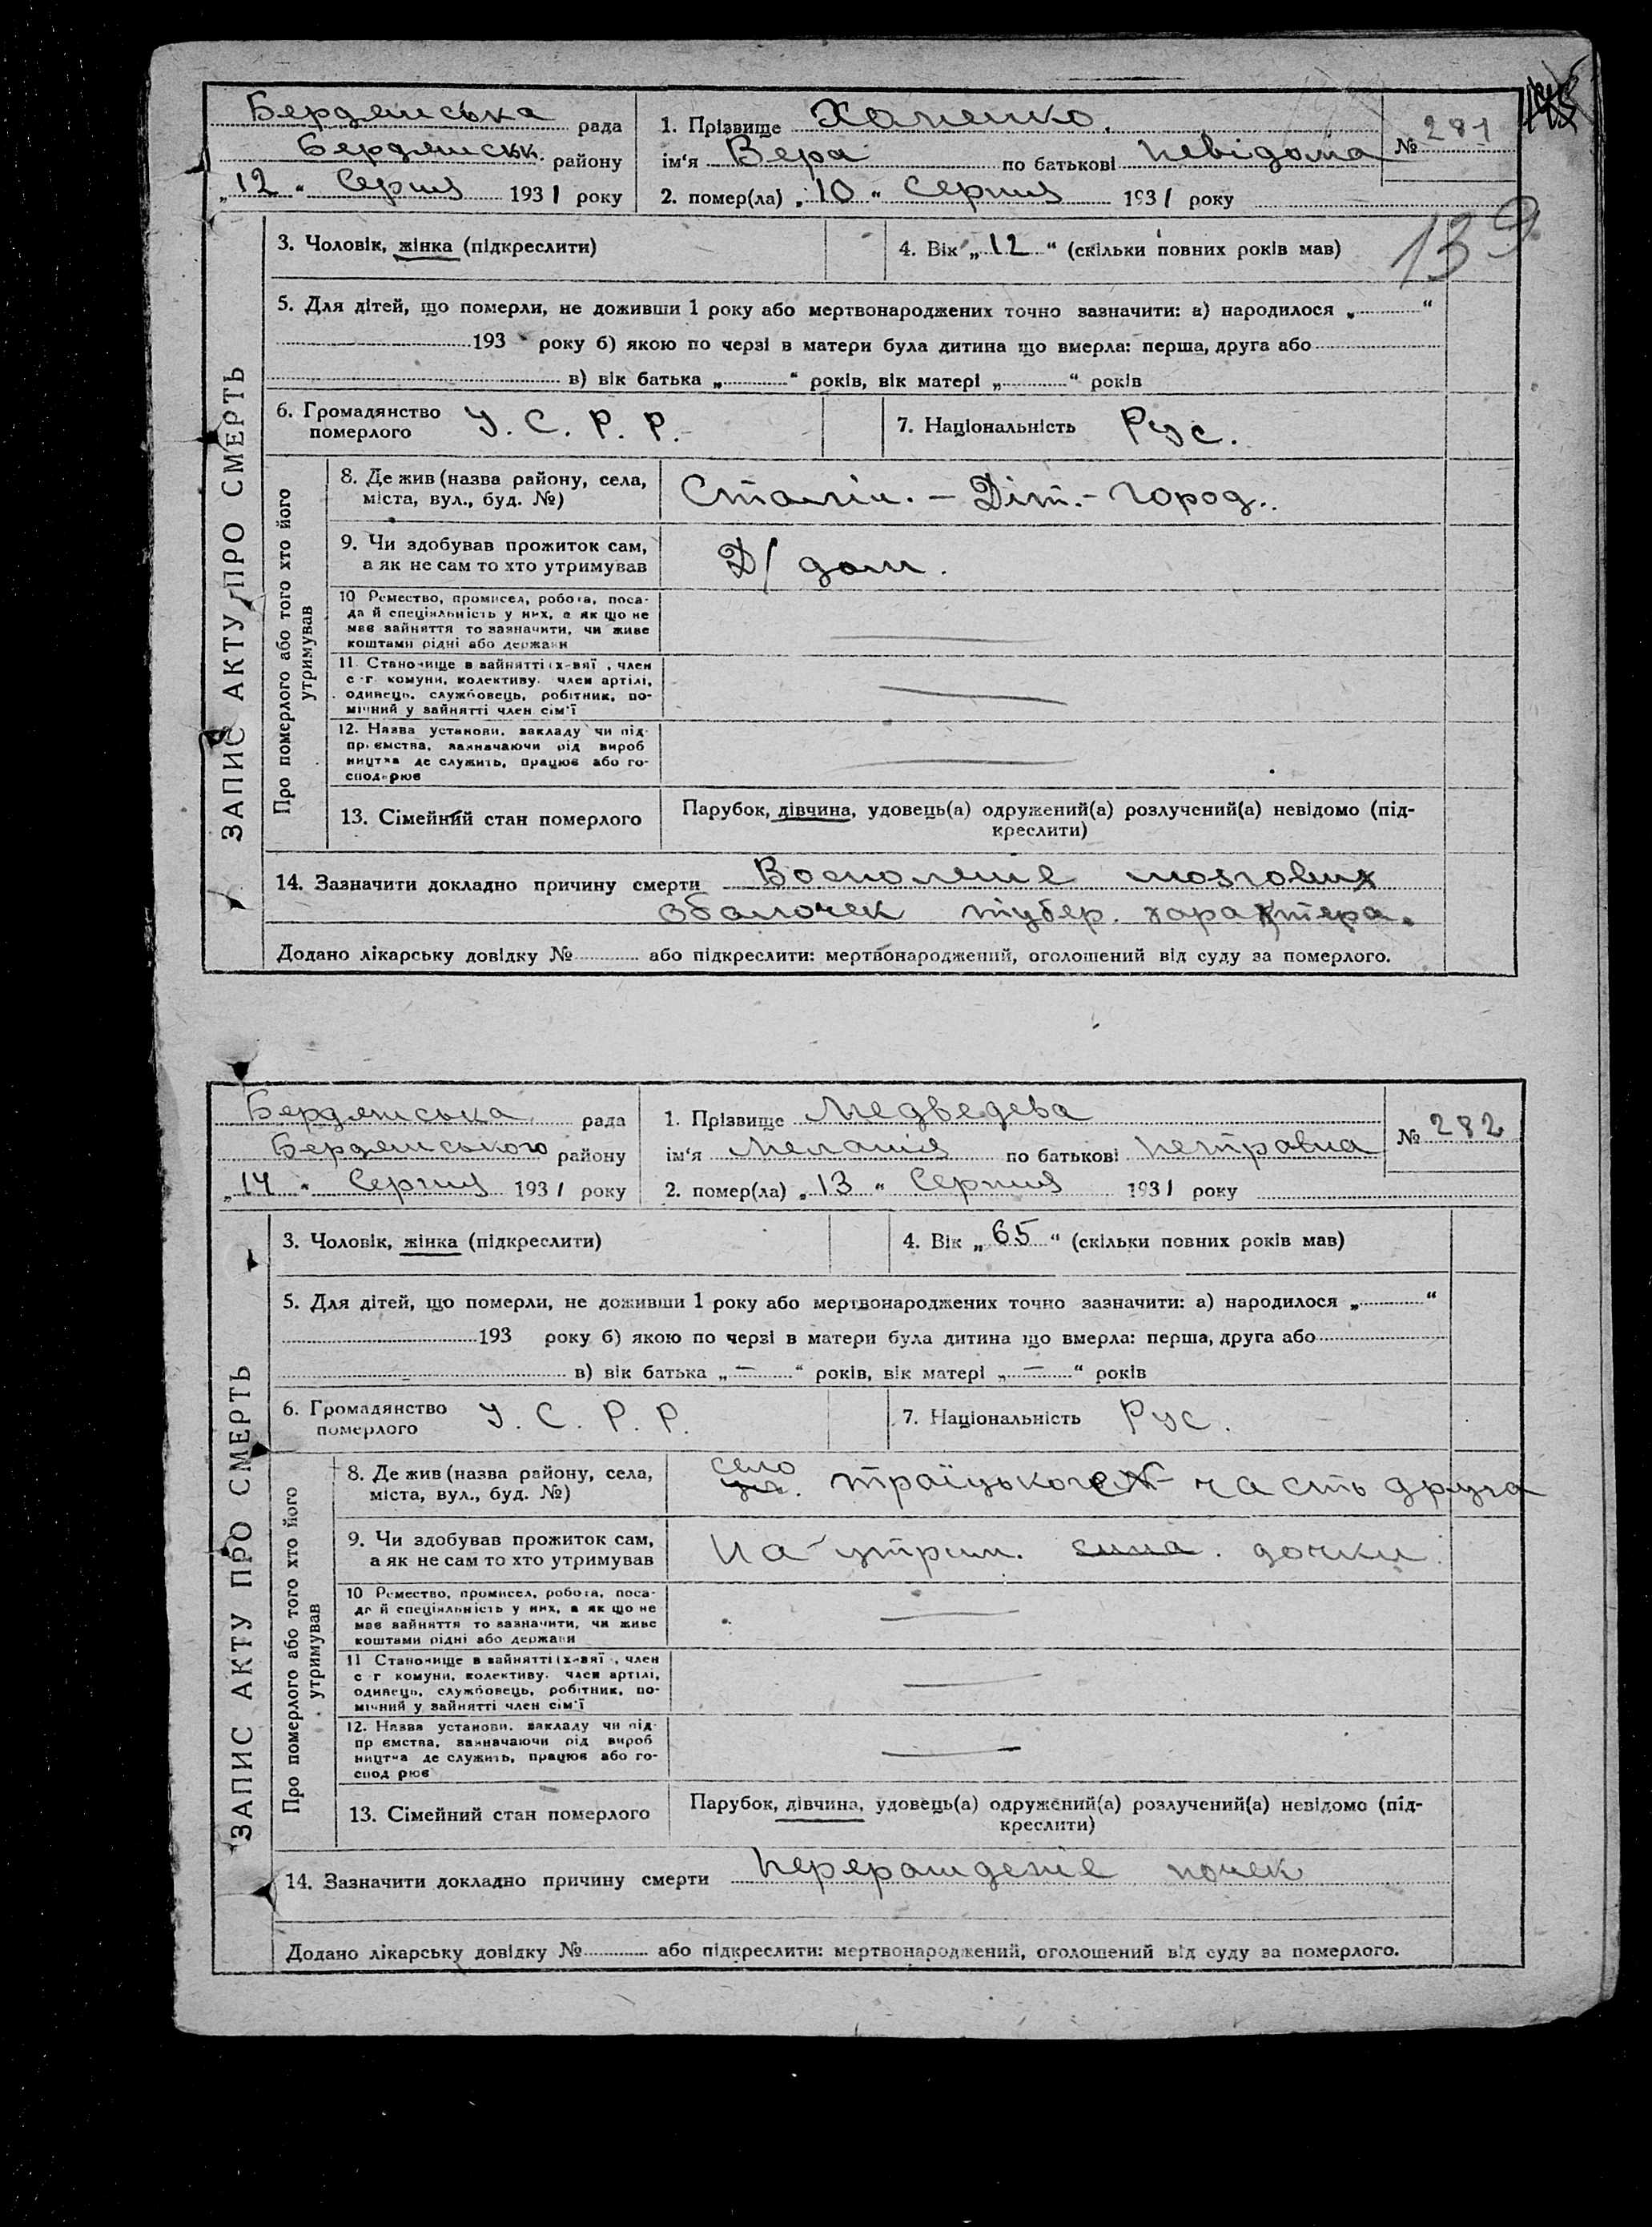 Бердянська рада
1. Прізвище Ханенко.
№ 281
Бердянськ. району
ім'я Вера по батькові невідома
„12“ Серпня 1931 року
2. помер(ла) „10“ Серпня 1931 року
139
ЗАПИС АКТУ ПРО СМЕРТЬ
3. Чоловік, жінка (підкреслити)
4. Вік „12“ (скільки повних років мав)
5. Для дітей, що померли, не доживши 1 року або мертвонароджених точно зазначити: а) народилося „ “
193 року б) якою по черзі в матери була дитина що вмерла: перша, друга або
в) вік батька „ “ років, вік матері „ “ років
6. Громадянство
померлого
У. С. Р. Р.
7. Національність Рус.
Про померлого або того хто його
утримував
8. Де жив (назва району, села,
міста, вул., буд. №)
Сталін. – Діт.- город.
9. Чи здобував прожиток сам,
а як не сам то хто утримував
Д/ дом.
10 Ремество, промисел, робота, поса-
да й спеціяльність у них, а як що не
має зайняття то зазначити, чи живе
коштами рідні або держави
11. Становище в зайнятті (х-вяї , член
с-г. комуни, колективу. член артілі,
одинець, службовець, робітник, по-
мічний у зайнятті член сім'ї
12. Назва установи, закладу чи під-
приємства, зазначаючи рід вироб
ництва де служить, працює або го-
сподарює
13. Сімейний стан померлого
Парубок, дівчина, удовець(а) одружений(а) розлучений(а) невідомо (під-
креслити)
14. Зазначити докладно причину смерти Восполение мозгових
оболочек тубер. характера.
Додано лікарську довідку № або підкреслити: мертвонароджений, оголошений від суду за померлого.
Бердянська рада
1. Прізвище Медведева
№ 282
Бердянського району
ім'я Меланія по батькові Петравна
„14“ Серпня 1931 року
2. помер(ла) „13“ Серпня 1931 року
ЗАПИС АКТУ ПРО СМЕРТЬ
3. Чоловік, жінка (підкреслити)
4. Вік „65“ (скільки повних років мав)
5. Для дітей, що померли, не доживши 1 року або мертвонароджених точно зазначити: а) народилося „ “
193 року б) якою по черзі в матери була дитина що вмерла: перша, друга або
в) вік батька „—“ років, вік матері „—“ років
6. Громадянство
померлого
У. С. Р. Р.
7. Національність Рус.
Про померлого або того хто його
утримував
8. Де жив (назва району, села,
міста, вул., буд. №)
село
ул. траїцького часть друга
9. Чи здобував прожиток сам,
а як не сам то хто утримував
На утрим. сина. дочки.
10 Ремество, промисел, робота, поса-
да й спеціяльність у них, а як що не
має зайняття то зазначити, чи живе
коштами рідні або держави
11 Становище в зайнятті (х-вяї , член
с г комуни, колективу. член артілі,
одинець, службовець, робітник, по-
мічний у зайнятті член сім'ї
12. Назва установи, закладу чи під-
приємства, зазначаючи рід вироб
ництва де служить, працює або го-
сподарює
13. Сімейний стан померлого
Парубок, дівчина, удовець(а) одружений(а) розлучений(а) невідомо (під-
креслити)
14. Зазначити докладно причину смерти Перерождение почек
Додано лікарську довідку № або підкреслити: мертвонароджений, оголошений від суду за померлого.